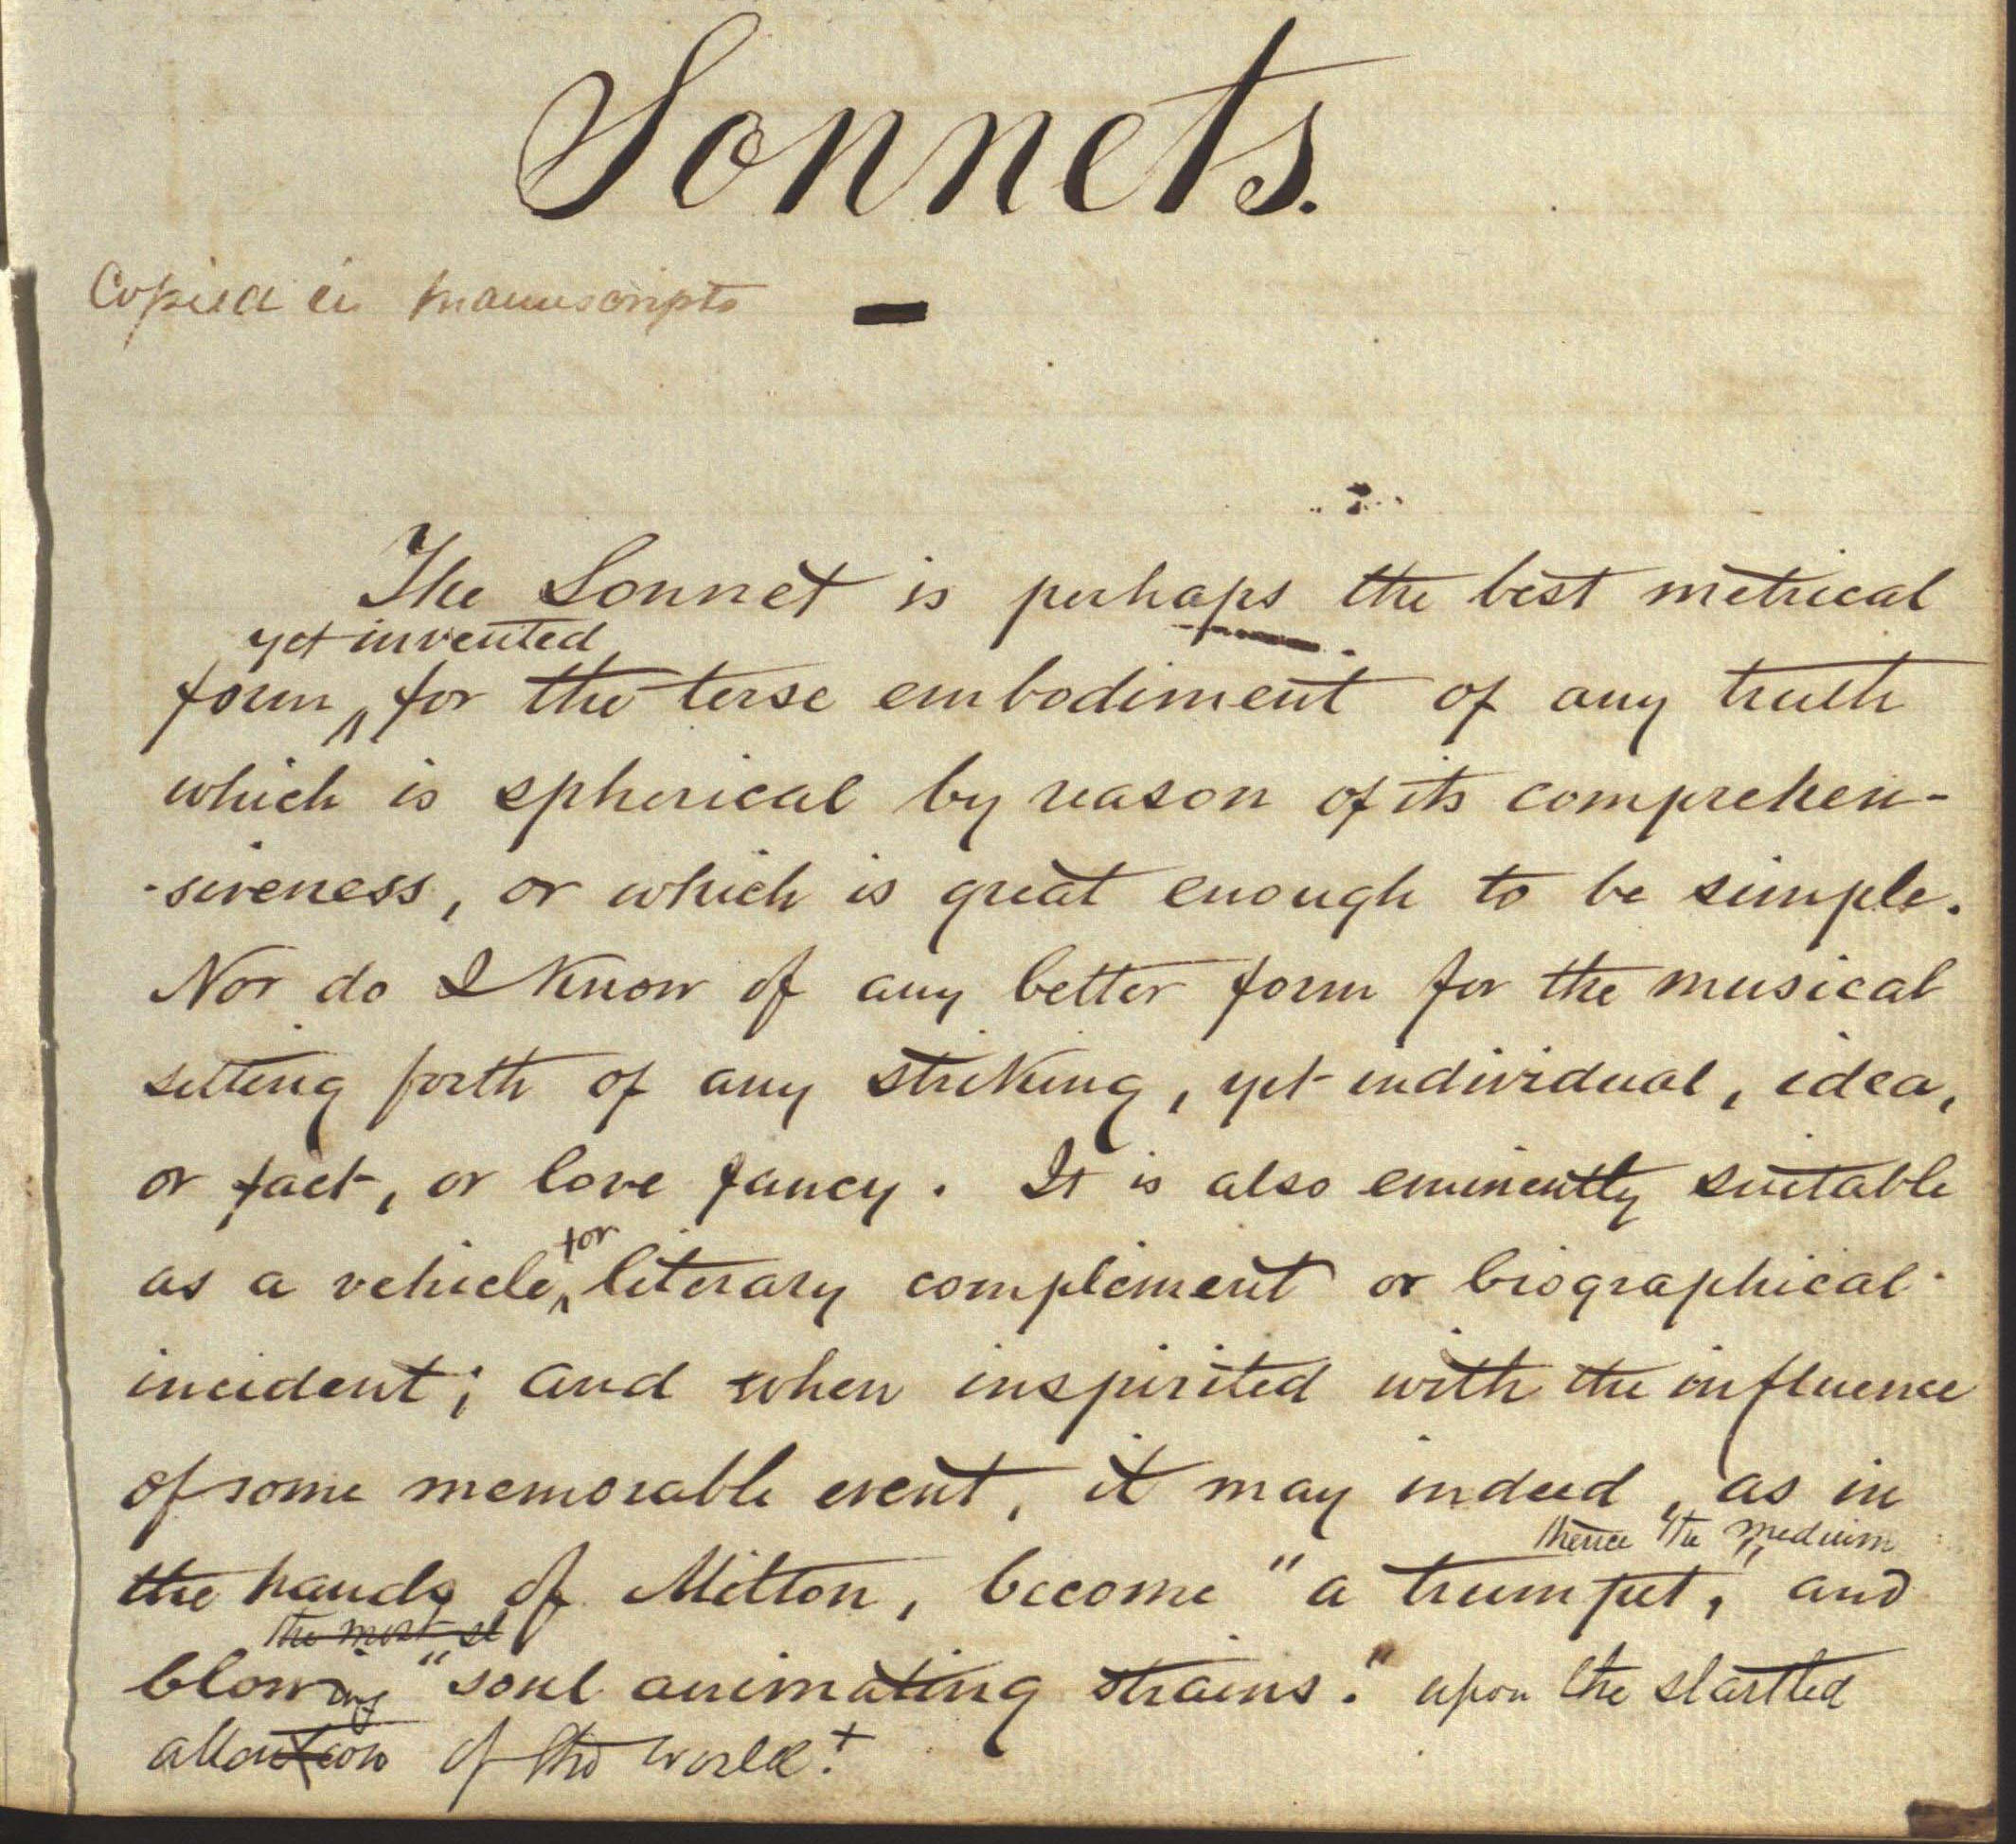 Sonnets.
Copied in manuscripts
The Sonnet is perhaps the best metrical
yet invented
form, for the terse embodiment of any truth
which is spherical by reason of its comprehen-
-siveness, or which is great enough to be simple.
Nor do I know of any better form for the musical
setting forth of any striking, yet individual, idea,
or fact, or love fancy. It is also eminently suitable
for
as a vehicle literary complement or biographical
incident; and when inspirited with the influence
of some memorable event, it may indeed, as in
thence the medium
the hands of Milton, become "a trumpet," and
the most
blowing "soul animating strains." upon the startled
attention of the world.+